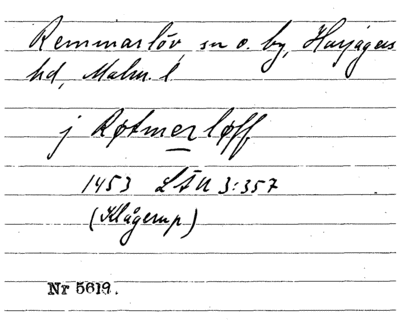 Remmarlöv, sn o. by, Harjagers
hd, Malm. l.
j Røtmerløff
1453 LÄU 3:357
(Klågerup)
Nr 5619.